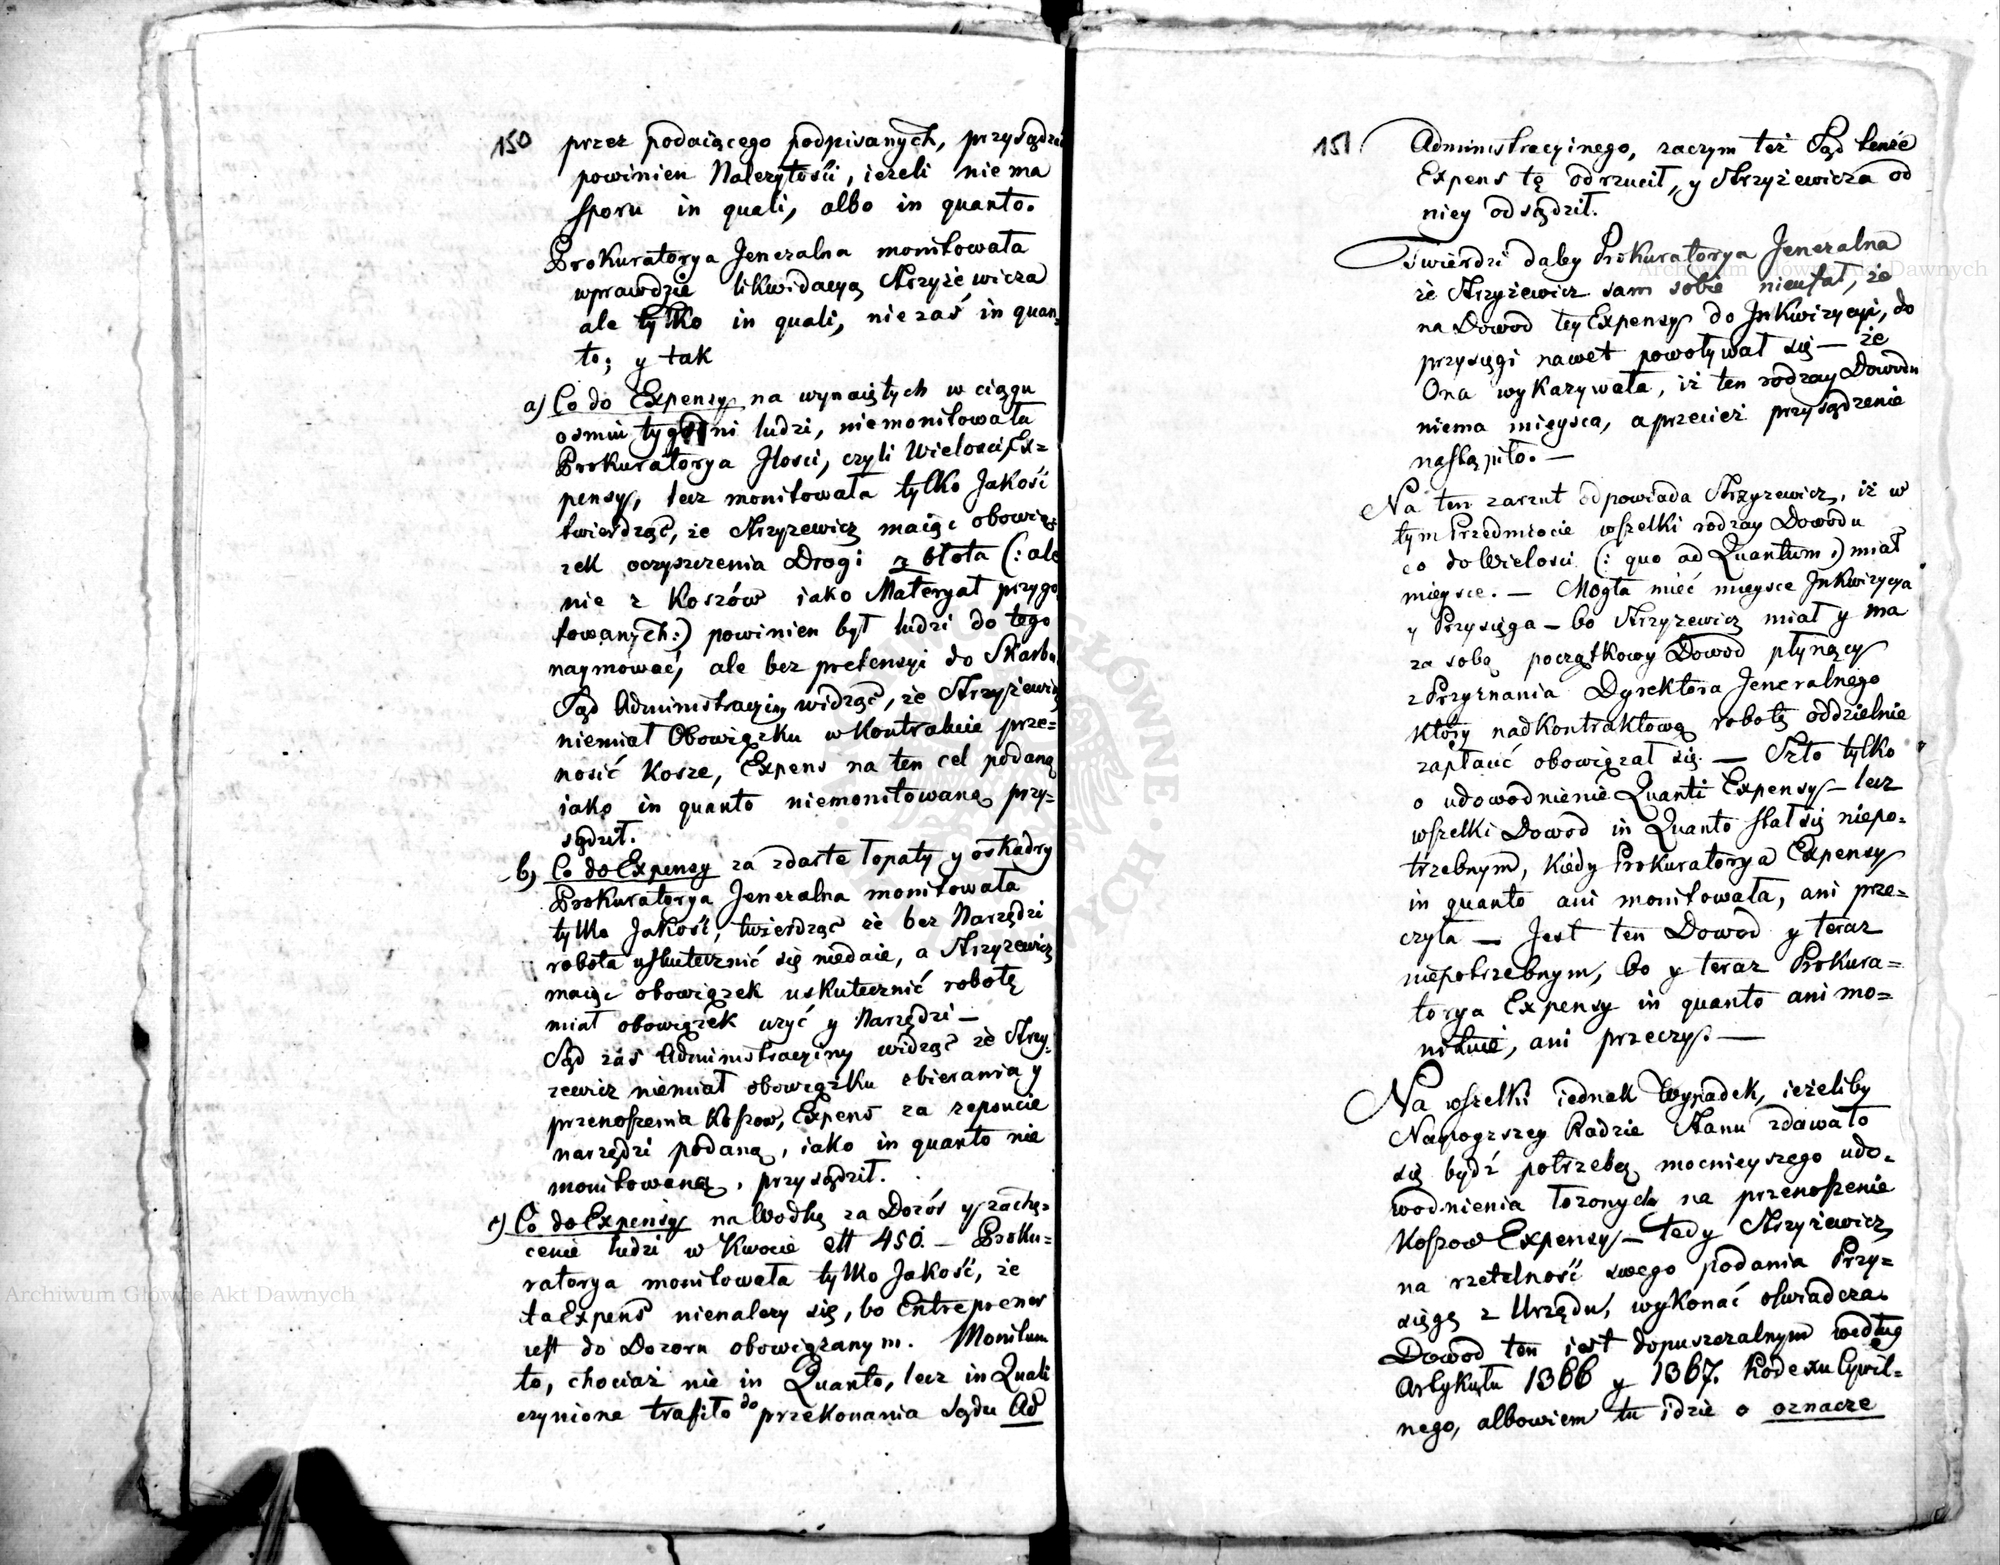 150
przez podaiącego podpisanych, przysądzić
powinien Należytości, ieżeli niema
sporu in quali, albo in quanto.
Prokuratorya Jeneralna monitowała
wprawdzie likwidacyą Strzyżewicza
ale tylko in quali, nie zaś in quan=
to; y tak
a) Co do Expensy na wynaiętych w ciągu
osmiu tygodni ludzi, niemonitowała
Prokuratorya Jlosci, czyli Wielosci Ex=
pensy, lecz monitowała tylko Jakość
twierdząć, że Strzyzewicz maiąc obowią
zek oczyszczenia Drogi z błota (: ale
nie z Koszów iako Materyał przygo
towanych:) powinien był ludzi do tego
naymować, ale bez pretensyi do Skarbu
Sąd Administracyiny widząć, że Strzyżewicz
niemiał Obowiązku w Kontrakcie prze=
nosić Kosze, Expens na ten cel podaną
iako in quanto niemonitowaną przy=
sądził.
b) Co do Expensy za zdarte łopaty y oskardy
Prokuratorya Jeneralna monitowała
tylko Jakość, twierdząć że bez Narzędzi
robota uskutecznić się niedaie, a Strzyzewicz
maiąc obowiązek uskutecznić robotę
miał obowiązek użyć y Narzędzi —
Sąd zaś Administracyiny widząć że Strzy=
zewicz niemiał obowiązku zbierania y
przenoszenia Koszow, Expens za zepsucie
narzędzi podaną, iako in quanto nie
monitowaną, przysądził.
c) Co do Expensy na Wodkę za Dozór y zachę=
cenie ludzi w Kwocie 450. — Proku=
ratorya monitowała tylko Jakość, że
ta Expens nienalezy się, bo Entreprener
iest do Dozoru obowiązanym. Monitum
to, chociaż nie in Quanto, lecz in Quali
czynione trafiło do przekonania Sądu Ad
151
Administracyinego, zaczym też Sąd tenże
Expens tę odrzucił, y Strzyżewicza od
niey odsądził.
Twierdzi daley Prokuratorya Jeneralna
że Strzyżewicz sam sobie nieufał, że
na Dowod tey Expensy do Jnkwizycyi, do
przysięgi nawet powoływał się — że
Ona wykazywała, iż ten rodzay Dowodu
niema mieysca, a przecież przysądzenie
nastąpiło. —
Na ten zarzut odpowiada Strzyzewicz, iż w
tym Przedmiocie wszelki rodzay Dowodu
co do Wielosci (: quo ad Quantum :) miał
mieysce. — Mogła mieć mieysce Jnkwizycya
y Przysięga — bo Strzyzewicz miał y ma
za sobą początkowy Dowod płynący
z Przyznania Dyrektora Jeneralnego
który nadkontraktową robotę oddzielnie
zapłacić obowiązał się. — Szło tylko
o udowodnienie Quanti Expensy — lecz
wszelki Dowod in Quanto stał się niepo=
trzebnym, kiedy Prokuratorya Expensy
in quanto ani monitowała, ani prze=
czyła — Jest ten Dowod y teraz
niepotrzebnym, bo y teraz Prokura=
torya Expensy in quanto ani mo=
nituie, ani przeczy. —
Na wszelki iednak Wypadek, ieżeliby
Naywyzszey Radzie Stanu zdawało
się bydź potrzebą mocnieyszego udo=
wodnienia łozonych na przenoszenie
Koszow Expensy — tedy Strzyżewicz
na rzetelność swego podania Przy=
sięgę z Urzędu, wykonać oswiadcza.
Dowod ten iest dopuszczalnym według
Artykułu 1366 y 1367. Kodexu Cywil=
nego, albowiem tu idzie o oznacze
Archiwum Główne Akt Dawnych
Archiwum Główne Akt Dawnych